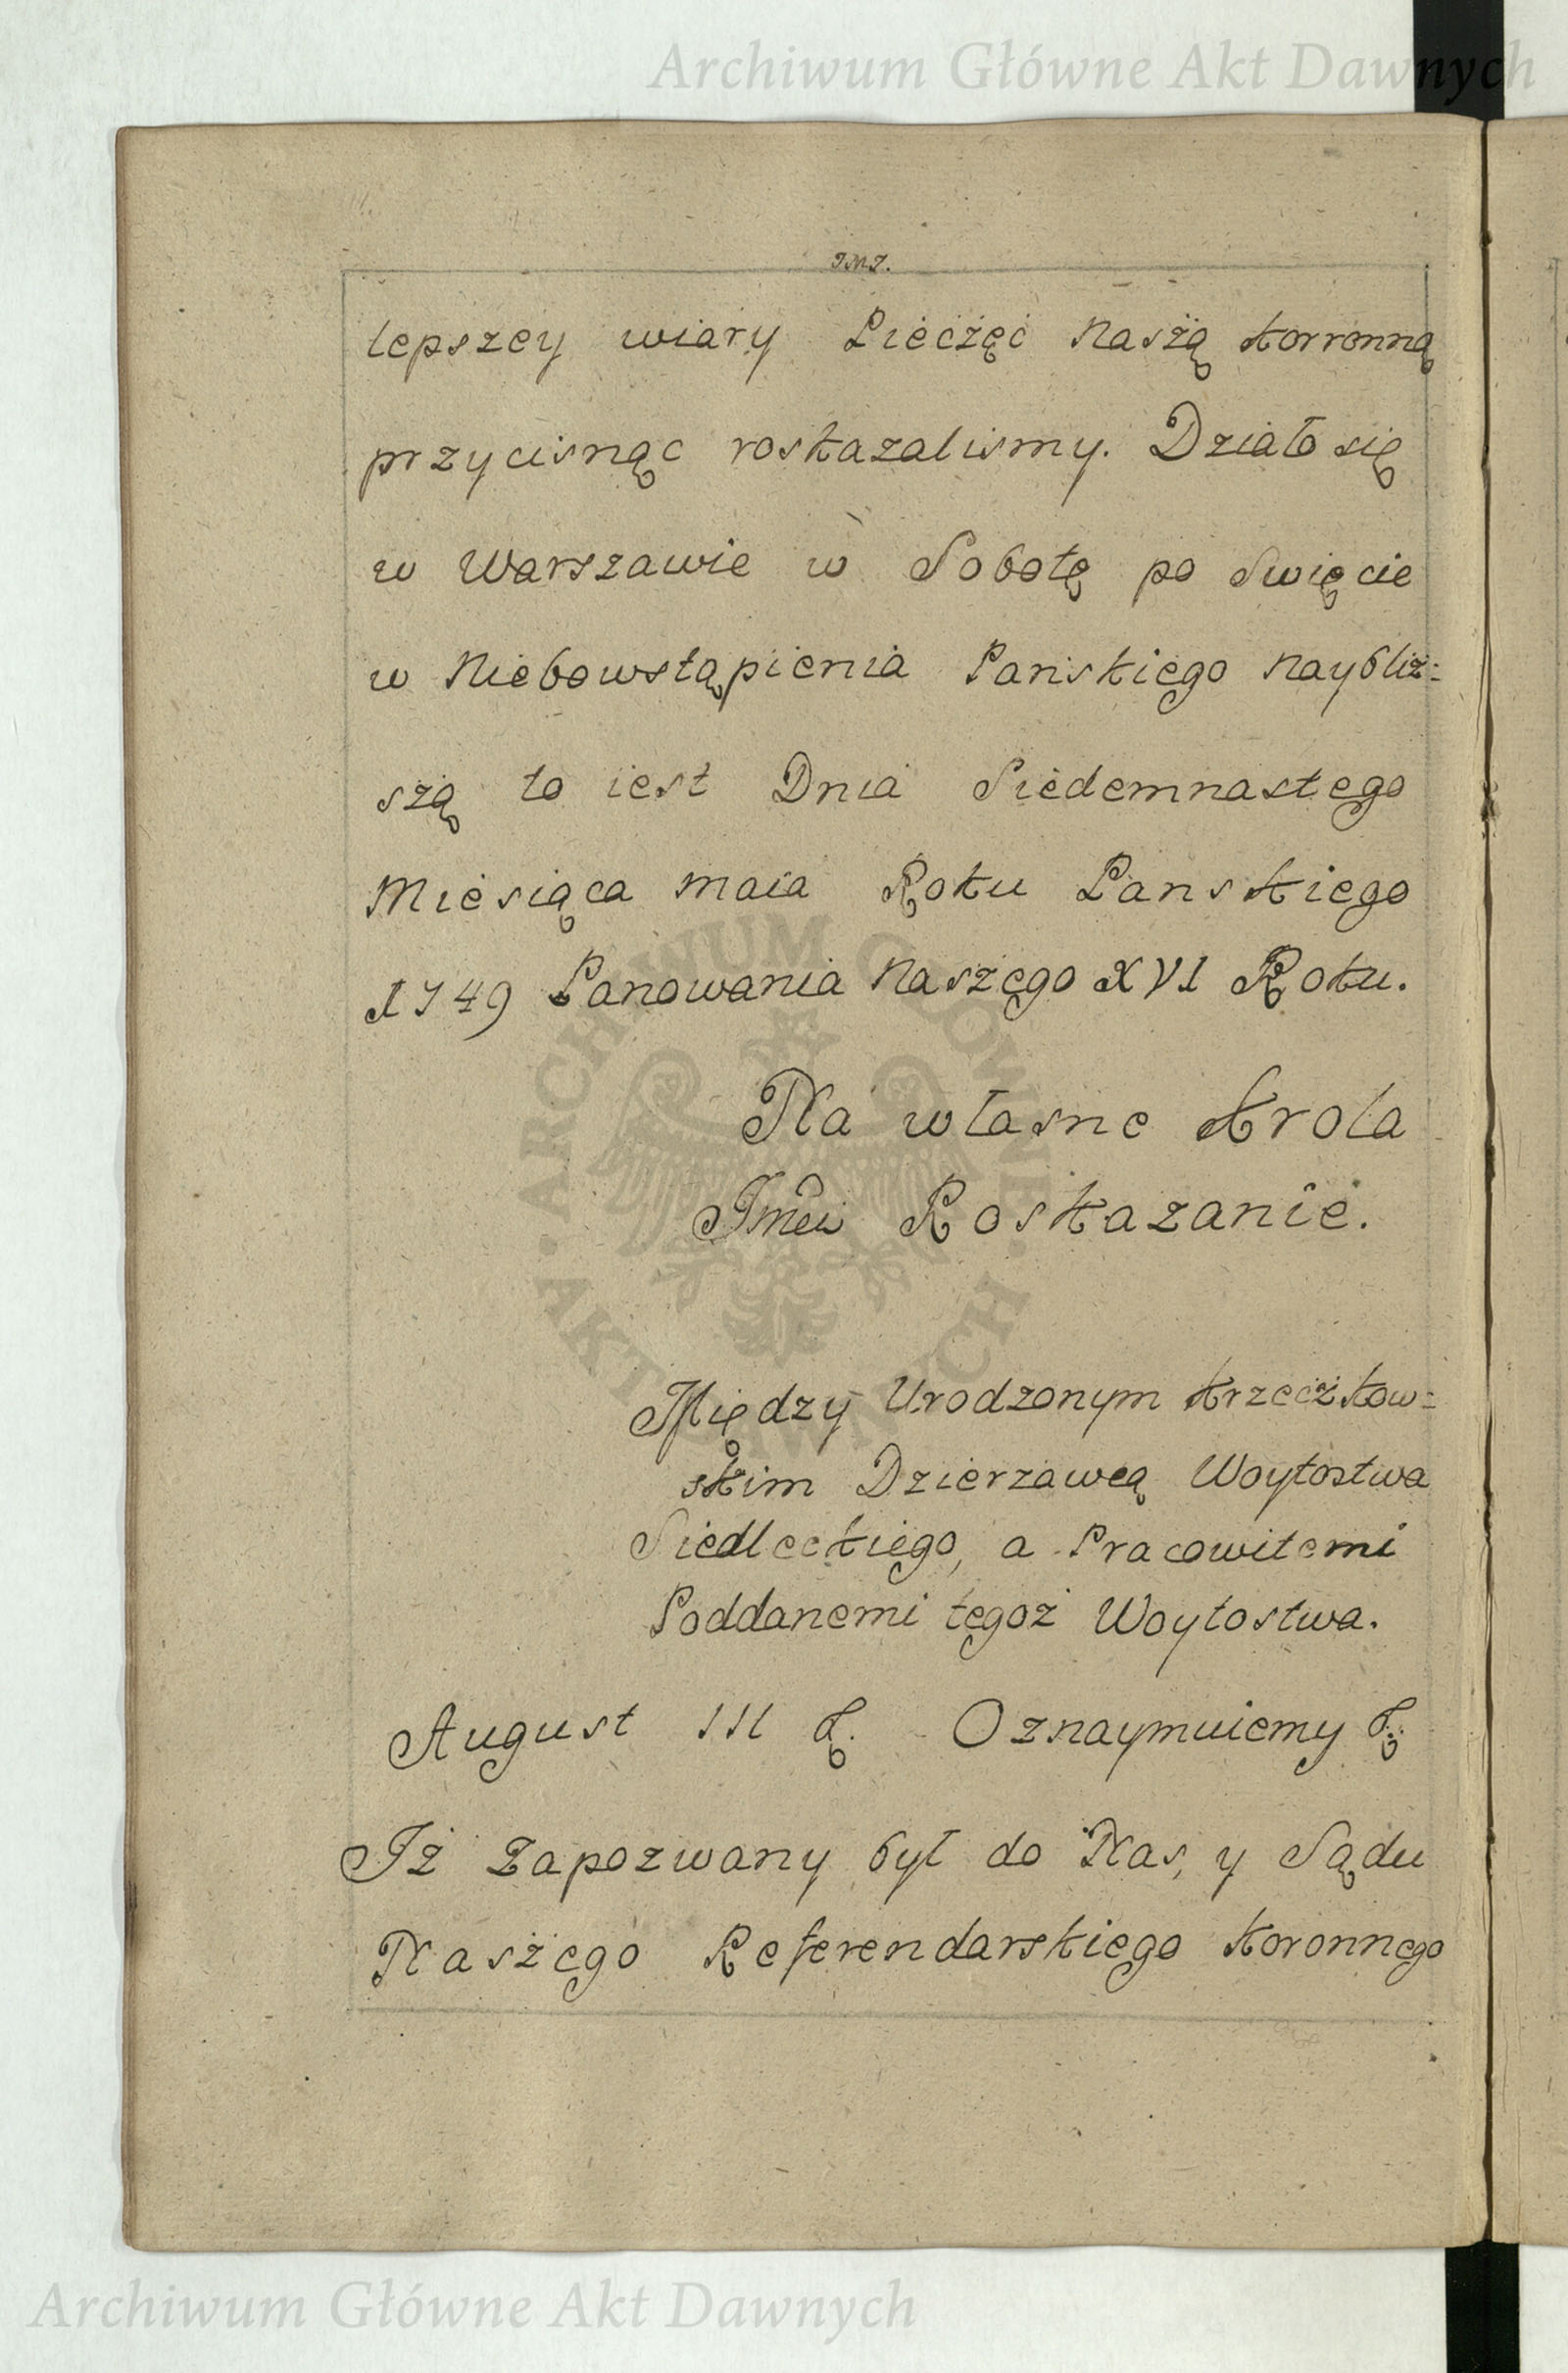 Archiwum Główne Akt Dawnych
J.M.J.
lepszey wiary Pieczęć Naszą Korronną
przycisnąc roskazalismy. Działo się
w Warszawie w Sobotę po Swięcie
w Niebowstąpienia Pańskiego Naybliz:
szą to iest Dnia Siedemnastego
Miesiąca Maia Roku Panskiego
1749 Panowania Naszego XVI Roku.
Na własne Krola
Roskazanie.
Między Urodzonym Krzeczkow:
skim Dzierzawcą Woytostwa
Siedleckiego, a Pracowitemi
Poddanemi tegoż Woytostwa.
August III &. Oznaymuiemy &.
Iż Zapozwany był do Nas, y Sądu
Naszego Referendarskiego Koronnego
ARCHIWUM GŁÓWNE · AKT DAWNYCH ·
Archiwum Główne Akt Dawnych